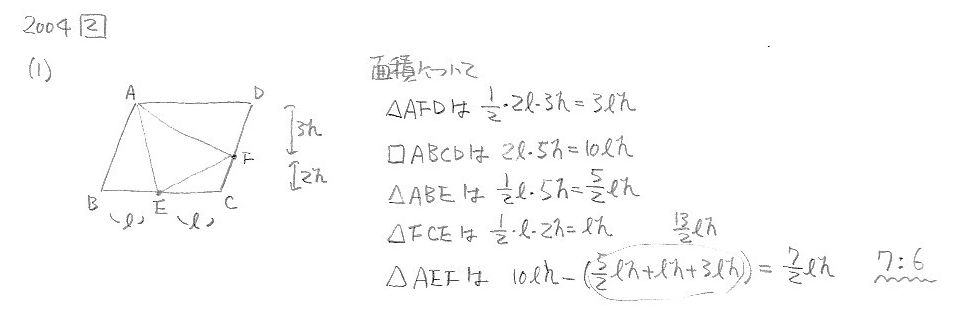 2004 2
(1)
A D
3h
F
2h
B E C
l l
面積について
△AFDは 1/2・2l・3h=3lh
□ABCDは 2l・5h=10lh
△ABEは 1/2l・5h=5/2lh
△FCEは 1/2・l・2h=lh 13/2lh
△AEFは 10lh-(5/2lh+lh+3lh)=7/2lh 7:6